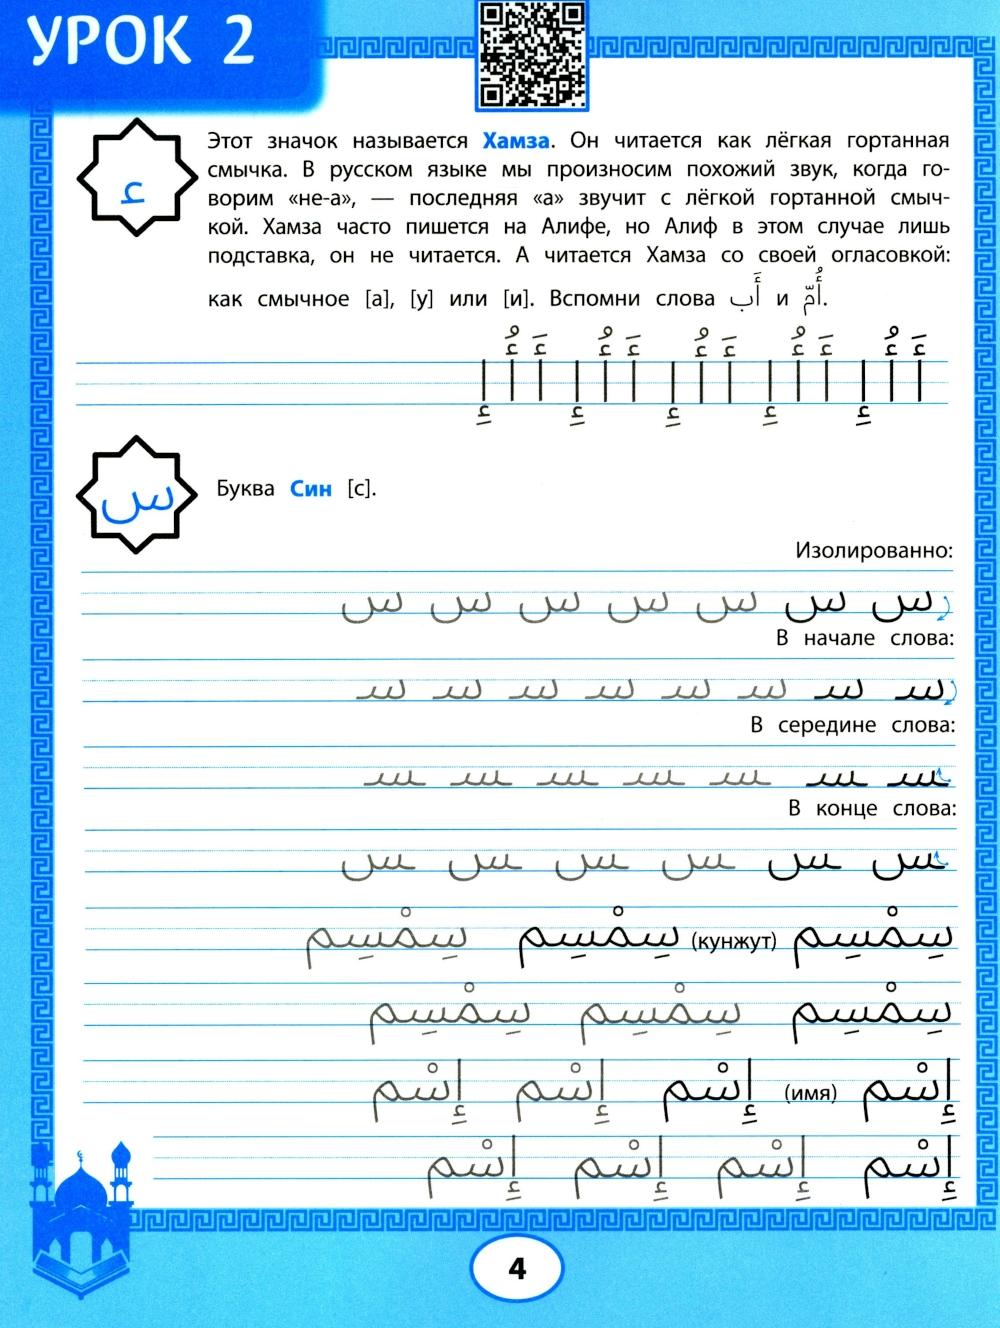 УРОК 2
ء
Этот значок называется Хамза. Он читается как лёгкая гортанная
смычка. В русском языке мы произносим похожий звук, когда го-
ворим «не-а», — последняя «а» звучит с лёгкой гортанной смыч-
кой. Хамза часто пишется на Алифе, но Алиф в этом случае лишь
подставка, он не читается. А читается Хамза со своей огласовкой:
как смычное [а], [у] или [и]. Вспомни слова أَب и أُمّ.
أَ أُ إِ أَ أُ إِ أَ أُ إِ أَ أُ إِ أَ أُ إِ
س
Буква Син [с].
Изолированно:
س س س س س س س
В начале слова:
سـ سـ سـ سـ سـ سـ سـ سـ
В середине слова:
ـسـ ـسـ ـسـ ـسـ ـسـ ـسـ ـسـ
В конце слова:
ـس ـس ـس ـس ـس ـس
سِمْسِم (кунжут) سِمْسِم سِمْسِم
سِمْسِم سِمْسِم سِمْسِم
إِسْم (имя) إِسْم إِسْم إِسْم
إِسْم إِسْم إِسْم إِسْم
4